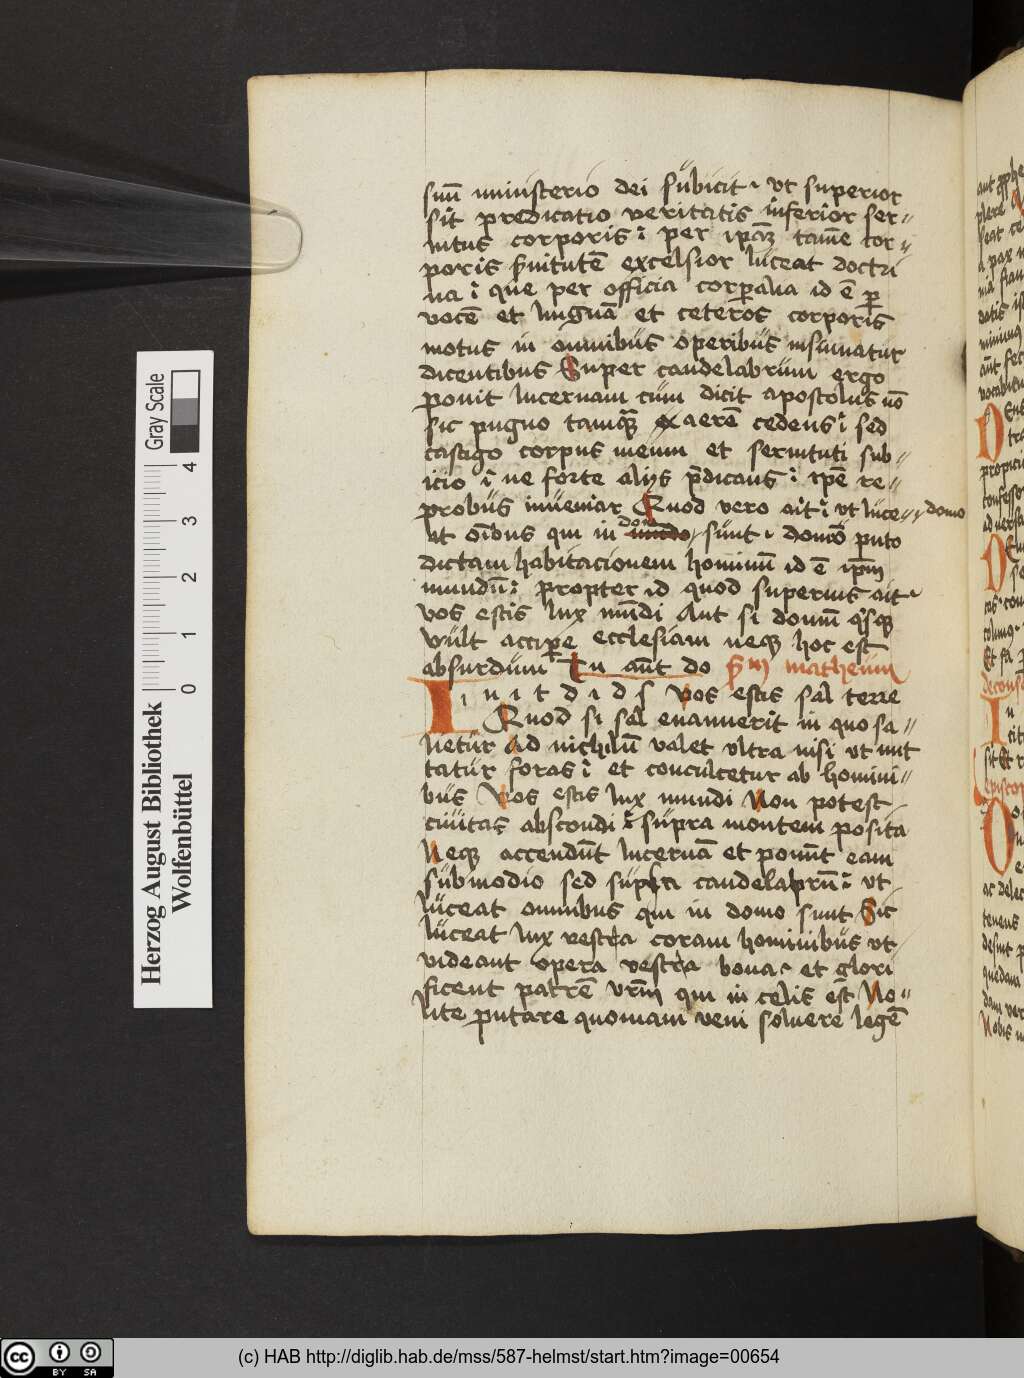 suū ministerio dei subicit · vt superior
sit predicatio veritatis inferior ser„
uitus corporis : per ipāꝫ tamē cor„
poris ẜuitutē excelsior luceat doctri
na : que per officia corꝑalia id ē ꝑ
vocē et linguā et ceteros corporis
motus in omnibus operibus insinuatur
dicentibus Super candelabrum ergo
ponit lucernam cum dicit apostolus nō
sic pugno tamqꝫ aerē cedens : sed
castigo corpus meum et seruituti sub„
icio : ne forte alijs p̄dicans : ipē re„
probus inueniar Quod vero ait : vt luce„
at oībus qui in mūdo domo sunt · domō puto
domo
dictam habitacionem hominū id ē ipm̄
mundū : propter id quod superius ait ·
vos estis lux mūdi Aut si domū qͥsqꝫ
vult accipe ecclesiam neqꝫ hoc est
absurdum Tu aūt do ẜm matheum
I n i t d i d s vos estis sal terre
Quod si sal euanuerit in quo sa„
lietur Ad nichilū valet vltra nisi vt mit
tatur foras : et conculcetur ab homini„
bus Vos estis lux mundi Non potest
ciuitas abscondi supra montem posita
Neqꝫ accendūt lucernā et ponūt eam
submodio sed supra candelabrū : vt
luceat omnibus qui in domo sunt Sic
luceat lux vestra coram hominibus vt
videant opera vestra bona · et glori
ficent patrē vrm̄ qui in celis est No„
lite putare quoniam veni soluere legē
Herzog August Bibliothek
Wolfenbüttel
0 1 2 3 4
Gray Scale
cc BY SA
(c) HAB http://diglib.hab.de/mss/587-helmst/start.htm?image=00654